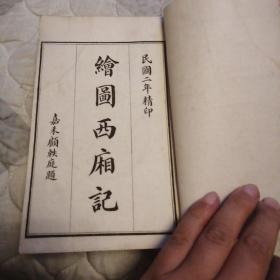 民國二年精印
繪圖西廂記
嘉禾顧軼庭題